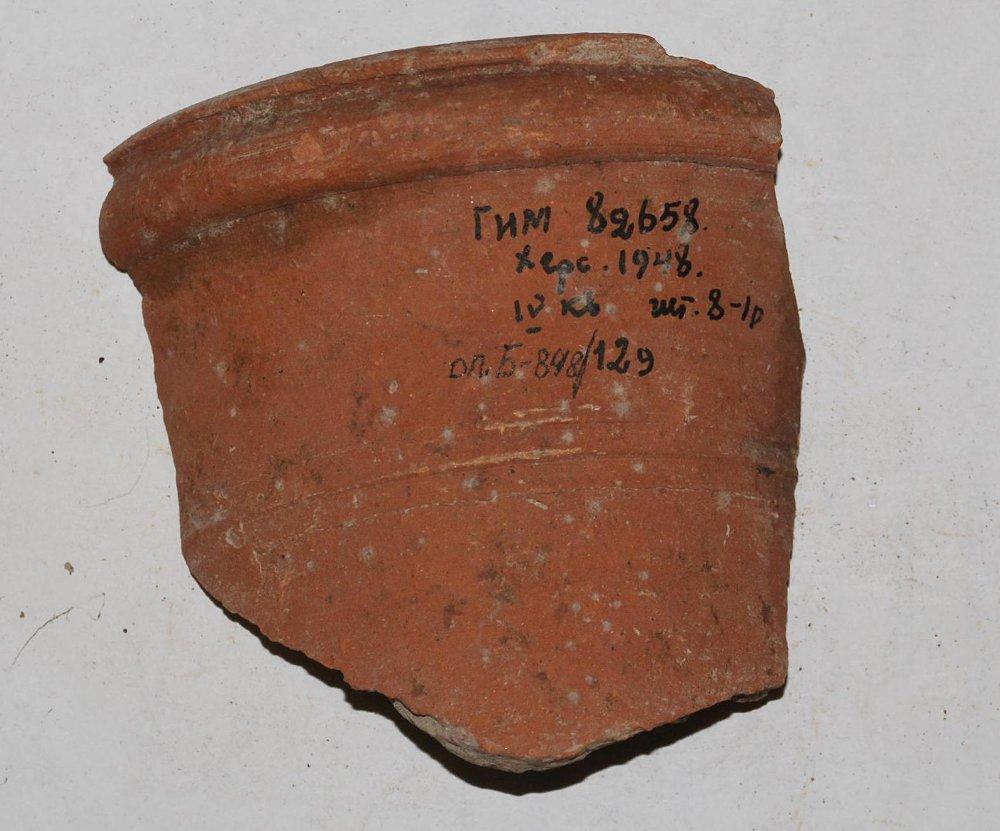 ГИМ 82658.
Херс. 1948.
IV кв. шт. 8-10
оп. Б-848/129